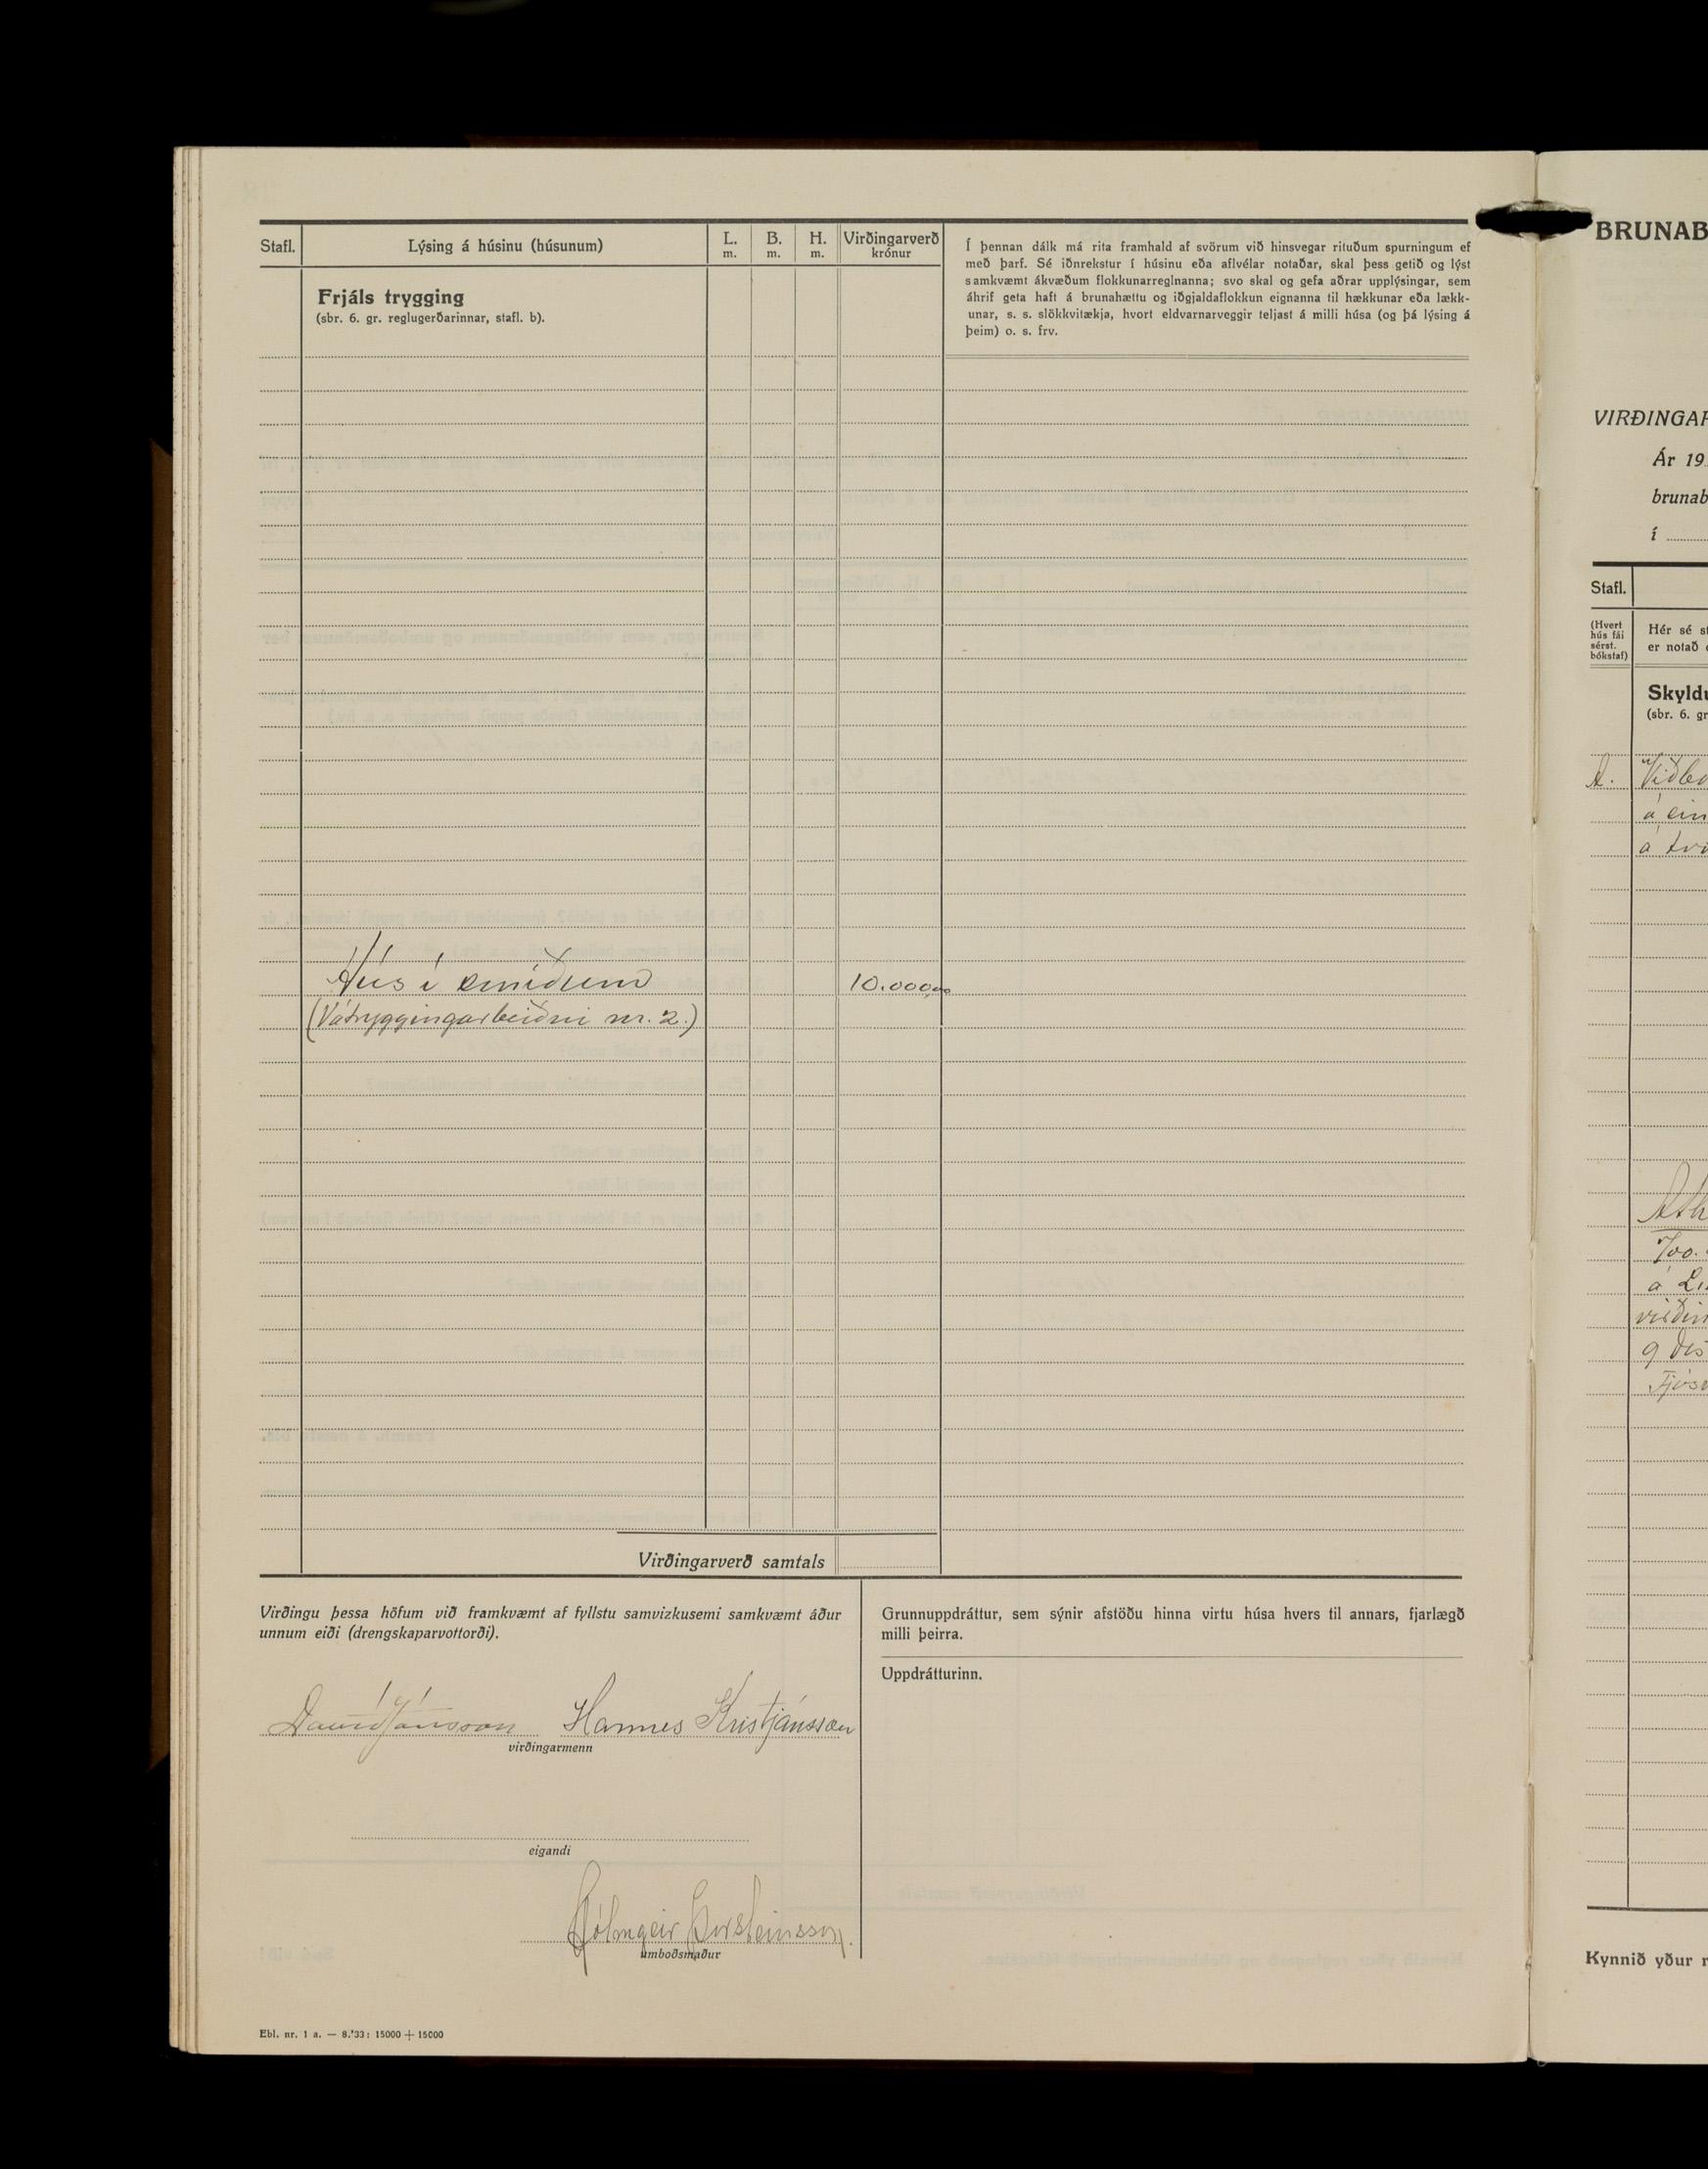 Stafl.
Lýsing á húsinu (húsunum)
L. m.
B. m.
H. m.
Virðingarverð krónur
Frjáls trygging
(sbr. 6. gr. reglugerðarinnar, stafl. b).
Í þennan dálk má rita framhald af svörum við hinsvegar rituðum spurningum ef
með þarf. Sé iðnrekstur í húsinu eða aflvélar notaðar, skal þess getið og lýst
samkvæmt ákvæðum flokkunarreglnanna; svo skal og gefa aðrar upplýsingar, sem
áhrif geta haft á brunahættu og iðgjaldaflokkun eignanna til hækkunar eða lækk-
unar, s. s. slökkvitækja, hvort eldvarnarveggir teljast á milli húsa (og þá lýsing á
þeim) o. s. frv.
Hús í smíðum 10.000,00
(Vátryggingarbeiðni nr. 2.)
Virðingarverð samtals
Virðingu þessa höfum við framkvæmt af fyllstu samvizkusemi samkvæmt áður
unnum eiði (drengskaparvottorði).
Davíð Jónsson Hannes Kristjánsson
virðingarmenn
eigandi
Hólmgeir Þorsteinsson.
umboðsmaður
Grunnuppdráttur, sem sýnir afstöðu hinna virtu húsa hvers til annars, fjarlægð
milli þeirra.
Uppdrátturinn.
Ebl. nr. 1 a. — 8.'33: 15000 + 15000
BRUNAB
VIRÐINGAR
Ár 19
brunab
í
Stafl.
(Hvert
hús fái
sérst.
bókstaf)
Hér sé s
er notað
Skyldu
(sbr. 6. gr
A. Viðb
á ein
á tv
Ath
700.
á L
virðin
g
Fjós
Kynnið yður r